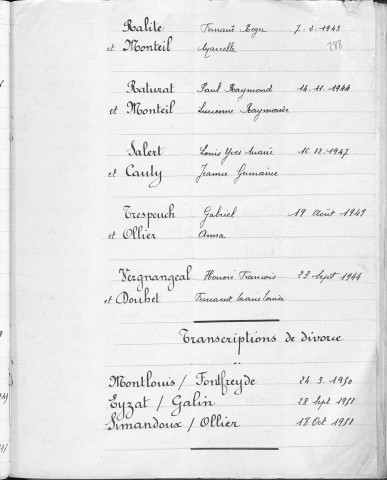 Ralite Fernand Roger 7-2-1943
et Monteil Marcelle 288
Raturat Paul Raymond 14.11.1944
et Monteil Lucienne Raymonde
Salert Louis Yves Marie 16.12.1947
et Cauty Jeanne Germaine
Trespeuch Gabriel 19 Août 1949
et Ollier Anna
Vergnangeal Honoré François 23 Sept 1944
et Douhet Fernande Marie Louise
Transcriptions de divorce
Montlouis / Fontfreyde 24.3.1950
Eyzat / Galin 28 Sept 1951
Simandoux / Ollier 18 Oct 1951